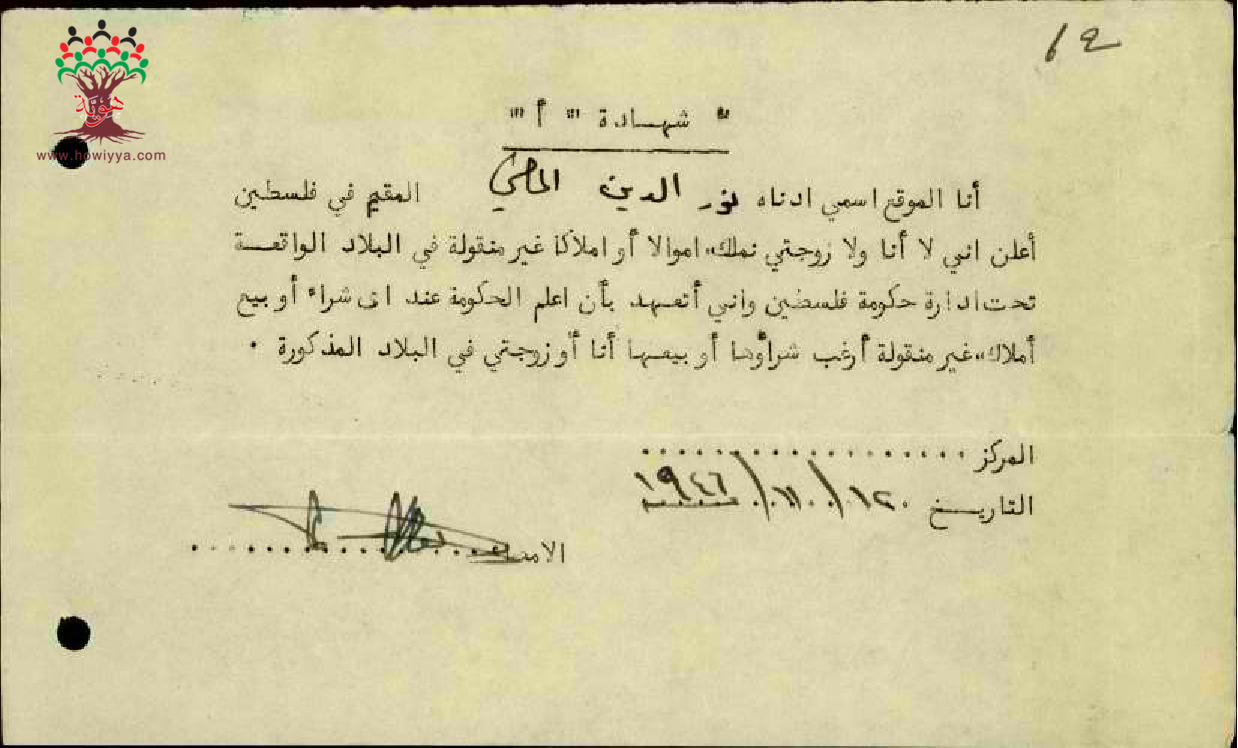 هويّة
www.howiyya.com
12
" شهادة " أ " "
أنا الموقع اسمي ادناه نور الدين الماضي المقيم في فلسطين
أعلن اني لا أنا ولا زوجتي نملك اموالا أو املاكا غير منقولة في البلاد الواقعة
تحت ادارة حكومة فلسطين واني أتعهد بأن اعلم الحكومة عند اى شراء أو بيع
أملاك غير منقولة أرغب شراؤها أو بيعها أنا أو زوجتي في البلاد المذكورة .
المركز ..................
التاريخ ١٢/١١/١٩٤٦